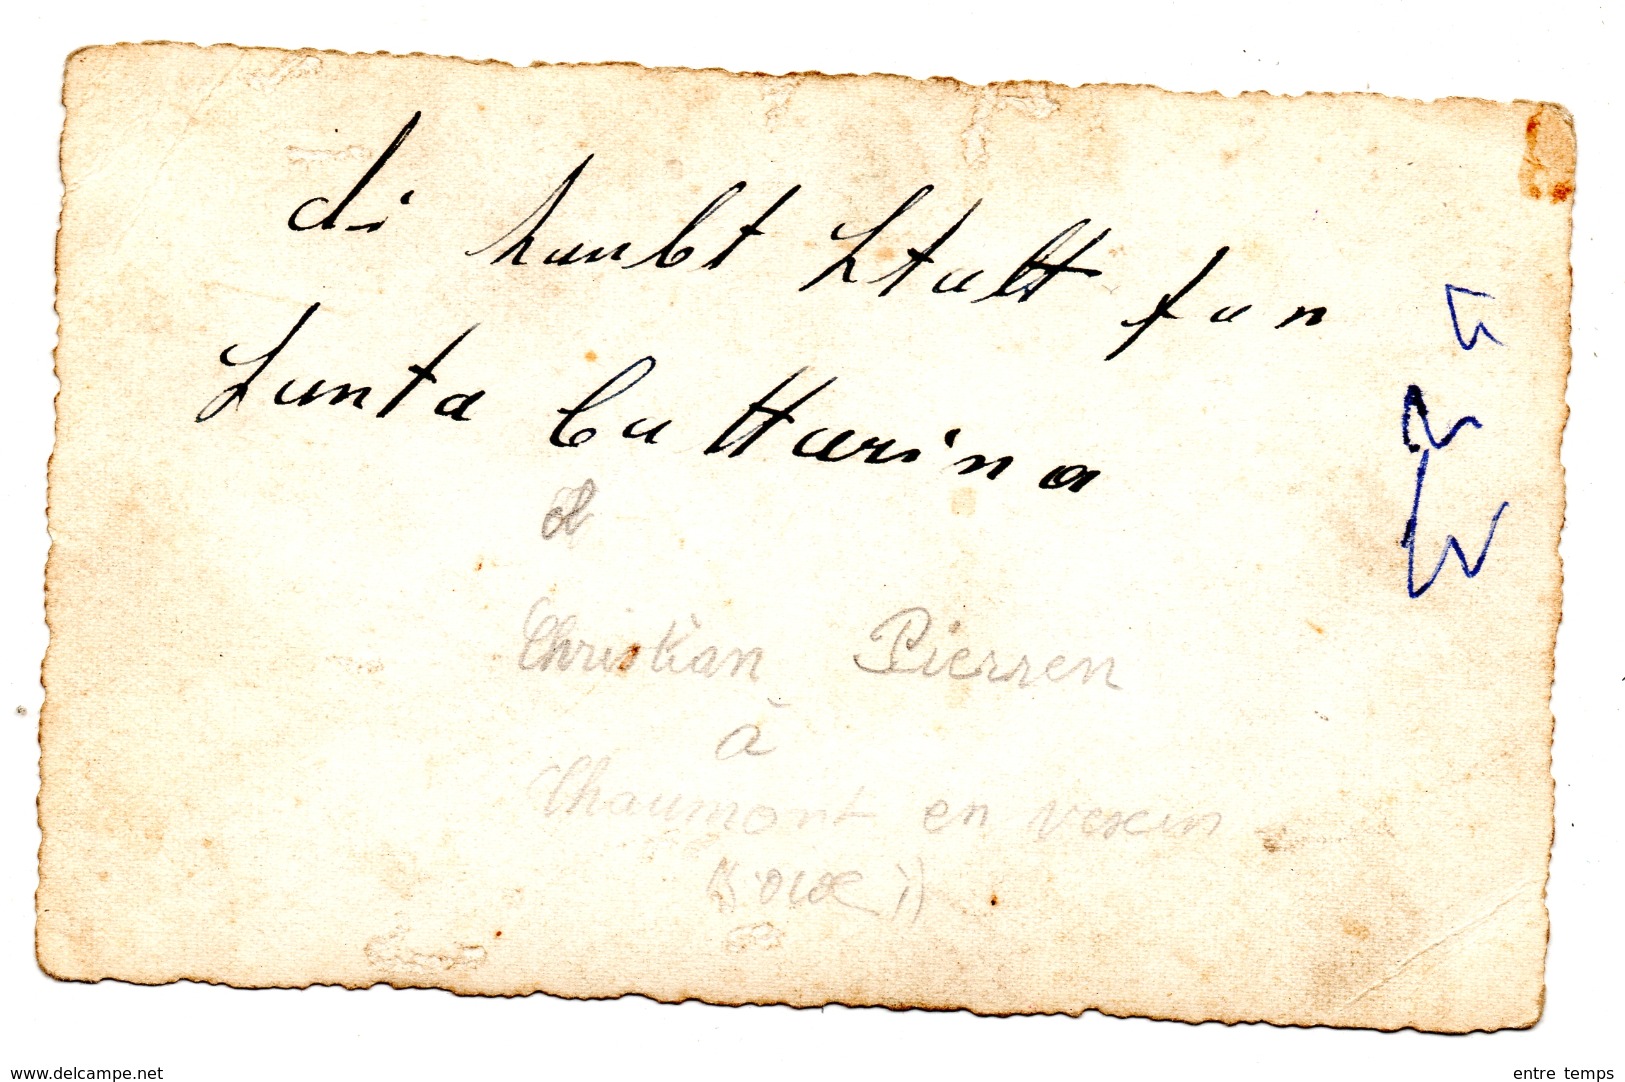 di haubt Stalt fan
Santa Cattarina
Christian Pierren
à
Chaumont en vexin
www.delcampe.net
entre temps